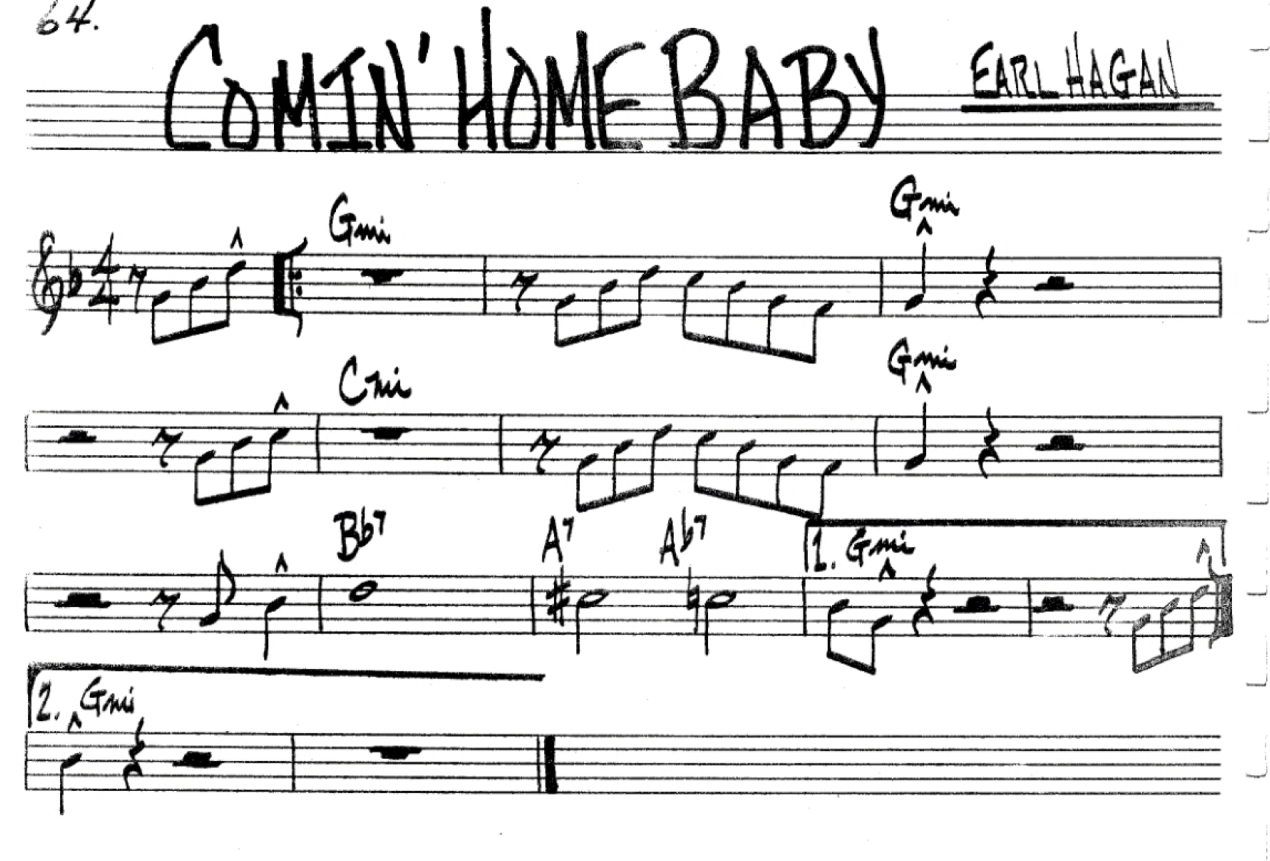 64.
COMIN' HOME BABY
EARL HAGAN
4
4
Gmi
Gmi
Cmi
Gmi
Bb7
A7
Ab7
1. Gmi
2. Gmi